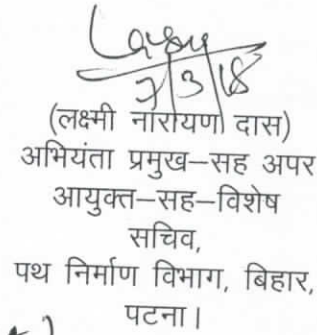 7/3/18
(लक्ष्मी नारायण दास)
अभियंता प्रमुख–सह अपर
आयुक्त–सह–विशेष
सचिव,
पथ निर्माण विभाग, बिहार,
पटना।